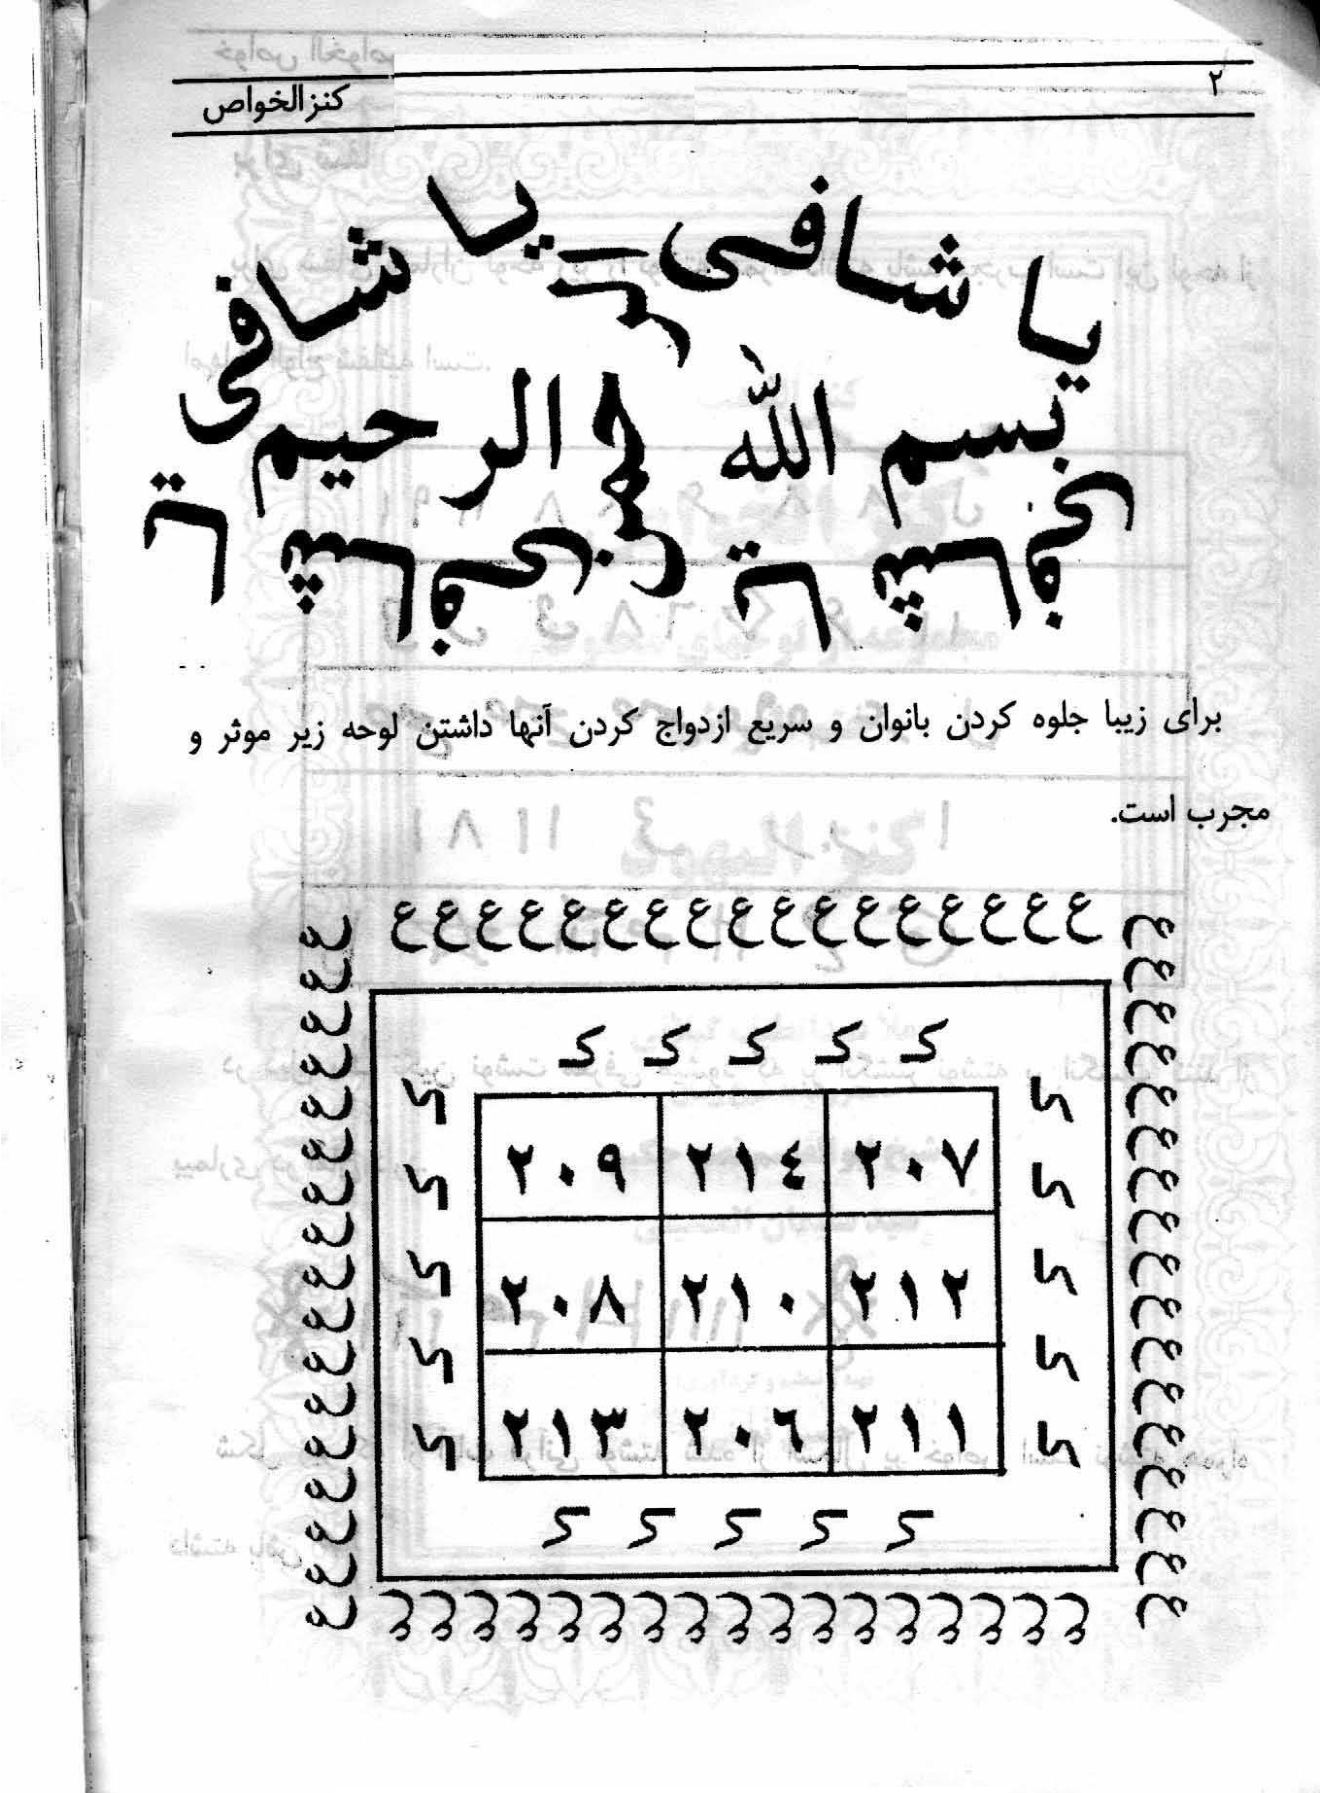 ۲ کنزالخواص
یا شافی یا شافی
بسم الله الرحمن الرحیم
یا شافی یا شافی
برای زیبا جلوه کردن بانوان و سریع ازدواج کردن آنها داشتن لوحه زیر موثر و
مجرب است.
ع ع ع ع ع ع ع ع ع ع ع ع ع ع ع ع ع
ع ع ع ع ع ع ع ع ع ع ع ع ع ع ع ع ع
ک ک ک ک ک
ک ک ک ک ک
۲۰۷ ۲۱٤ ۲۰۹
۲۱۲ ۲۱۰ ۲۰۸
۲۱۱ ۲۰٦ ۲۱۳
ک ک ک ک ک
ک ک ک ک ک
ع ع ع ع ع ع ع ع ع ع ع ع ع ع ع ع ع
ع ع ع ع ع ع ع ع ع ع ع ع ع ع ع ع ع